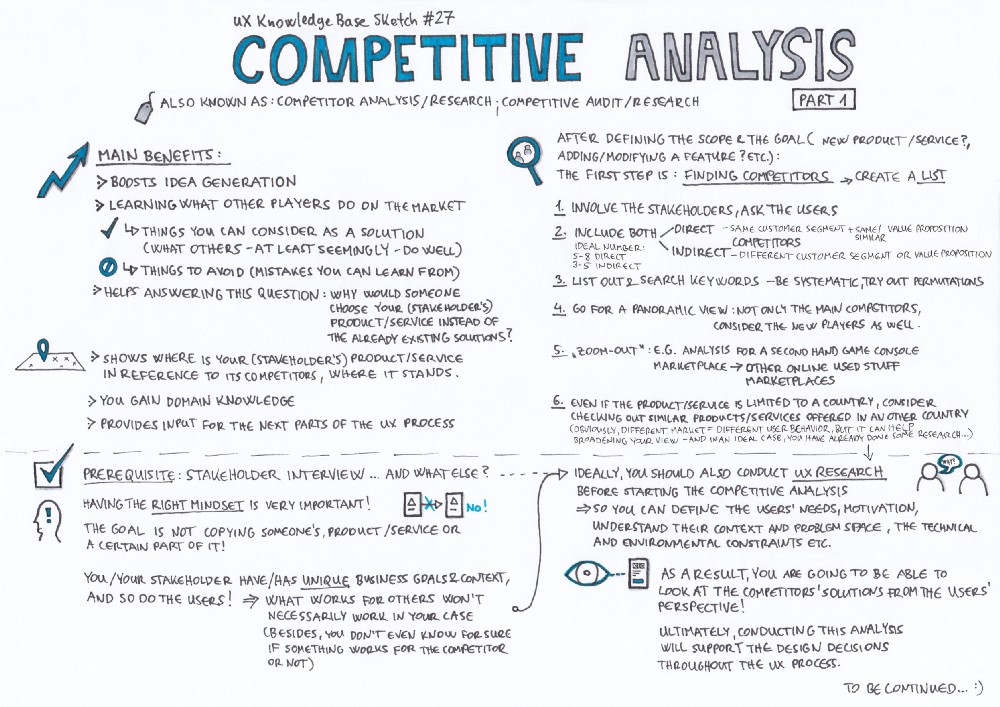 UX Knowledge Base Sketch #27
COMPETITIVE ANALYSIS
ALSO KNOWN AS: COMPETITOR ANALYSIS/RESEARCH; COMPETITIVE AUDIT/RESEARCH
PART 1
MAIN BENEFITS:
BOOSTS IDEA GENERATION
LEARNING WHAT OTHER PLAYERS DO ON THE MARKET
THINGS YOU CAN CONSIDER AS A SOLUTION
(WHAT OTHERS - AT LEAST SEEMINGLY - DO WELL)
THINGS TO AVOID (MISTAKES YOU CAN LEARN FROM)
HELPS ANSWERING THIS QUESTION: WHY WOULD SOMEONE
CHOOSE YOUR (STAKEHOLDER'S)
PRODUCT/SERVICE INSTEAD OF
THE ALREADY EXISTING SOLUTIONS?
SHOWS WHERE IS YOUR (STAKEHOLDER'S) PRODUCT/SERVICE
IN REFERENCE TO ITS COMPETITORS, WHERE IT STANDS.
YOU GAIN DOMAIN KNOWLEDGE
PROVIDES INPUT FOR THE NEXT PARTS OF THE UX PROCESS
AFTER DEFINING THE SCOPE & THE GOAL (NEW PRODUCT/SERVICE?,
ADDING/MODIFYING A FEATURE? ETC.):
THE FIRST STEP IS: FINDING COMPETITORS → CREATE A LIST
1. INVOLVE THE STAKEHOLDERS, ASK THE USERS
2. INCLUDE BOTH DIRECT - SAME CUSTOMER SEGMENT + SAME/SIMILAR VALUE PROPOSITION
COMPETITORS
INDIRECT - DIFFERENT CUSTOMER SEGMENT OR VALUE PROPOSITION
IDEAL NUMBER:
5-8 DIRECT
3-5 INDIRECT
3. LIST OUT & SEARCH KEYWORDS - BE SYSTEMATIC, TRY OUT PERMUTATIONS
4. GO FOR A PANORAMIC VIEW: NOT ONLY THE MAIN COMPETITORS,
CONSIDER THE NEW PLAYERS AS WELL.
5. „ZOOM-OUT": E.G. ANALYSIS FOR A SECOND HAND GAME CONSOLE
MARKETPLACE → OTHER ONLINE USED STUFF
MARKETPLACES
6. EVEN IF THE PRODUCT/SERVICE IS LIMITED TO A COUNTRY, CONSIDER
CHECKING OUT SIMILAR PRODUCTS/SERVICES OFFERED IN AN OTHER COUNTRY
(OBVIOUSLY, DIFFERENT MARKET = DIFFERENT USER BEHAVIOR, BUT IT CAN HELP
BROADENING YOUR VIEW - AND IN AN IDEAL CASE, YOU HAVE ALREADY DONE SOME RESEARCH...)
PREREQUISITE: STAKEHOLDER INTERVIEW ... AND WHAT ELSE?
HAVING THE RIGHT MINDSET IS VERY IMPORTANT!
NO!
THE GOAL IS NOT COPYING SOMEONE'S PRODUCT/SERVICE OR
A CERTAIN PART OF IT!
YOU/YOUR STAKEHOLDER HAVE/HAS UNIQUE BUSINESS GOALS & CONTEXT,
AND SO DO THE USERS! ⇒ WHAT WORKS FOR OTHERS WON'T
NECESSARILY WORK IN YOUR CASE
(BESIDES, YOU DON'T EVEN KNOW FOR SURE
IF SOMETHING WORKS FOR THE COMPETITOR
OR NOT)
IDEALLY, YOU SHOULD ALSO CONDUCT UX RESEARCH
BEFORE STARTING THE COMPETITIVE ANALYSIS
⇒ SO YOU CAN DEFINE THE USERS' NEEDS, MOTIVATION,
UNDERSTAND THEIR CONTEXT AND PROBLEM SPACE, THE TECHNICAL
AND ENVIRONMENTAL CONSTRAINTS ETC.
WHY?
AS A RESULT, YOU ARE GOING TO BE ABLE TO
LOOK AT THE COMPETITORS' SOLUTIONS FROM THE USERS'
PERSPECTIVE!
ULTIMATELY, CONDUCTING THIS ANALYSIS
WILL SUPPORT THE DESIGN DECISIONS
THROUGHOUT THE UX PROCESS.
TO BE CONTINUED... :)